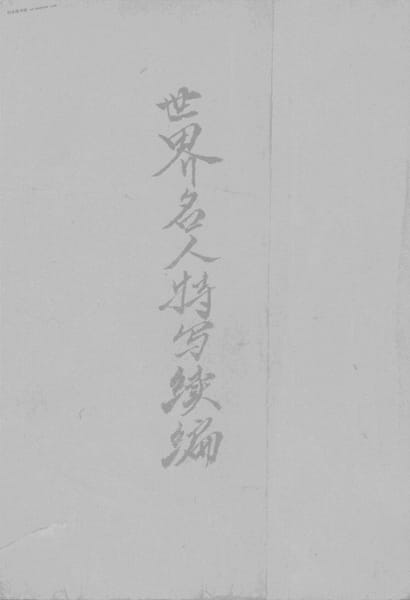 世界名人特写续编